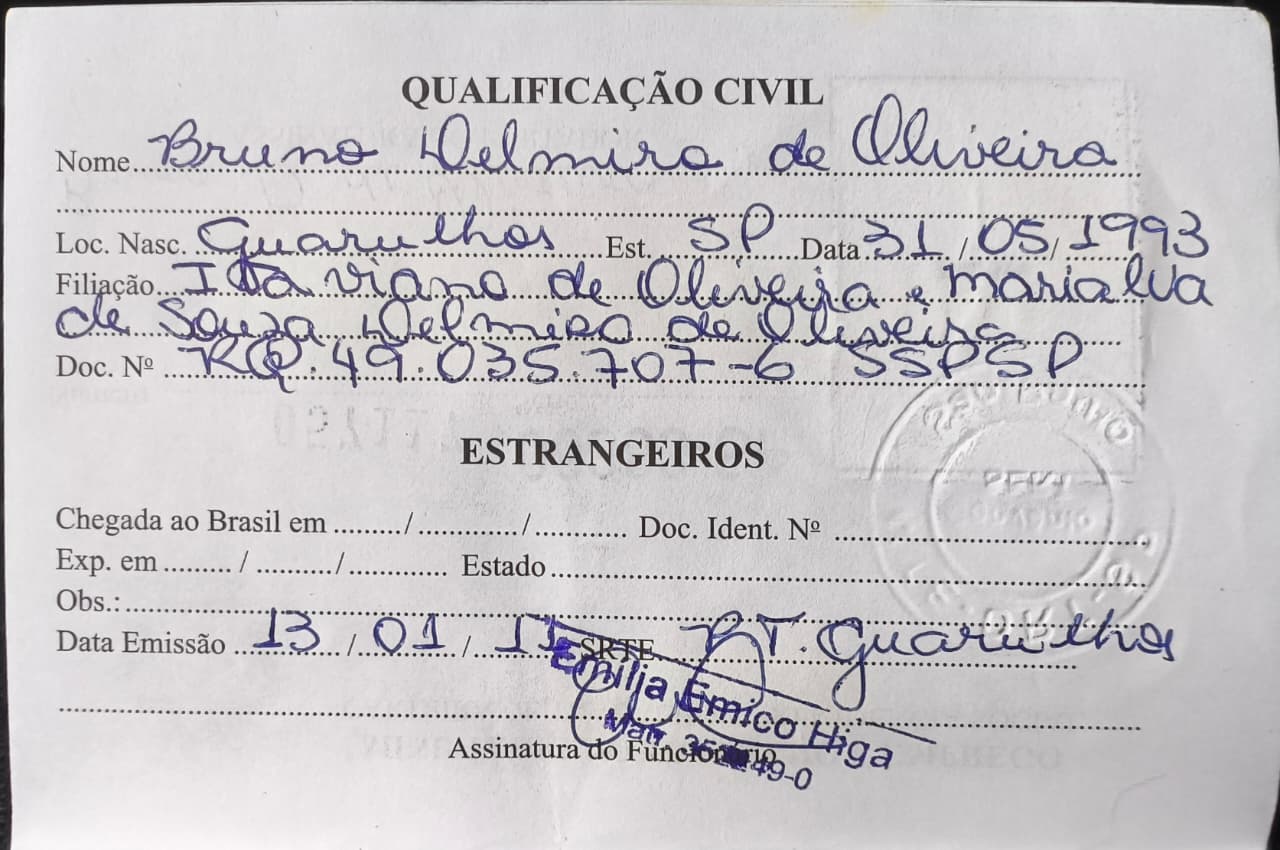 QUALIFICAÇÃO CIVIL
Nome Bruno Delmiro de Oliveira
Loc. Nasc. Guarulhos Est. SP Data 31/05/1993
Filiação Itaviano de Oliveira e Marialva
de Souza Delmiro de Oliveira
Doc. Nº RG. 49.035.707-6 SSPSP
ESTRANGEIROS
Chegada ao Brasil em ......../........../............ Doc. Ident. Nº
Exp. em ........./........../............. Estado
Obs.:
Data Emissão 13/01/11 SRTE RT. Guarulhos
Emilia Emico Higa
Assinatura do Funcionário
Matr. 49-0